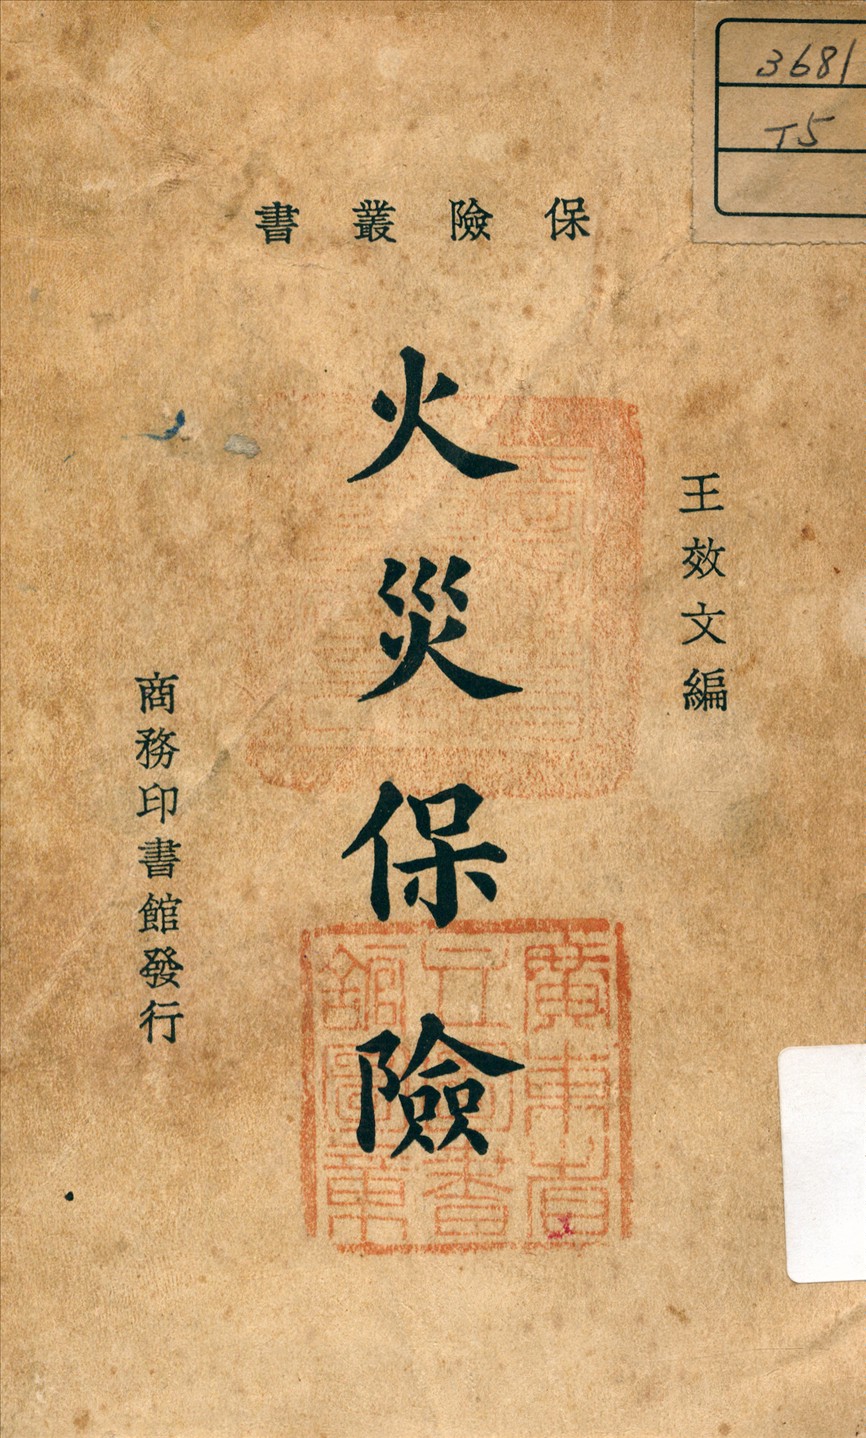 3681
T5
保險叢書
王效文編
火災保險
商務印書館發行
廣東省
立圖書
館圖章